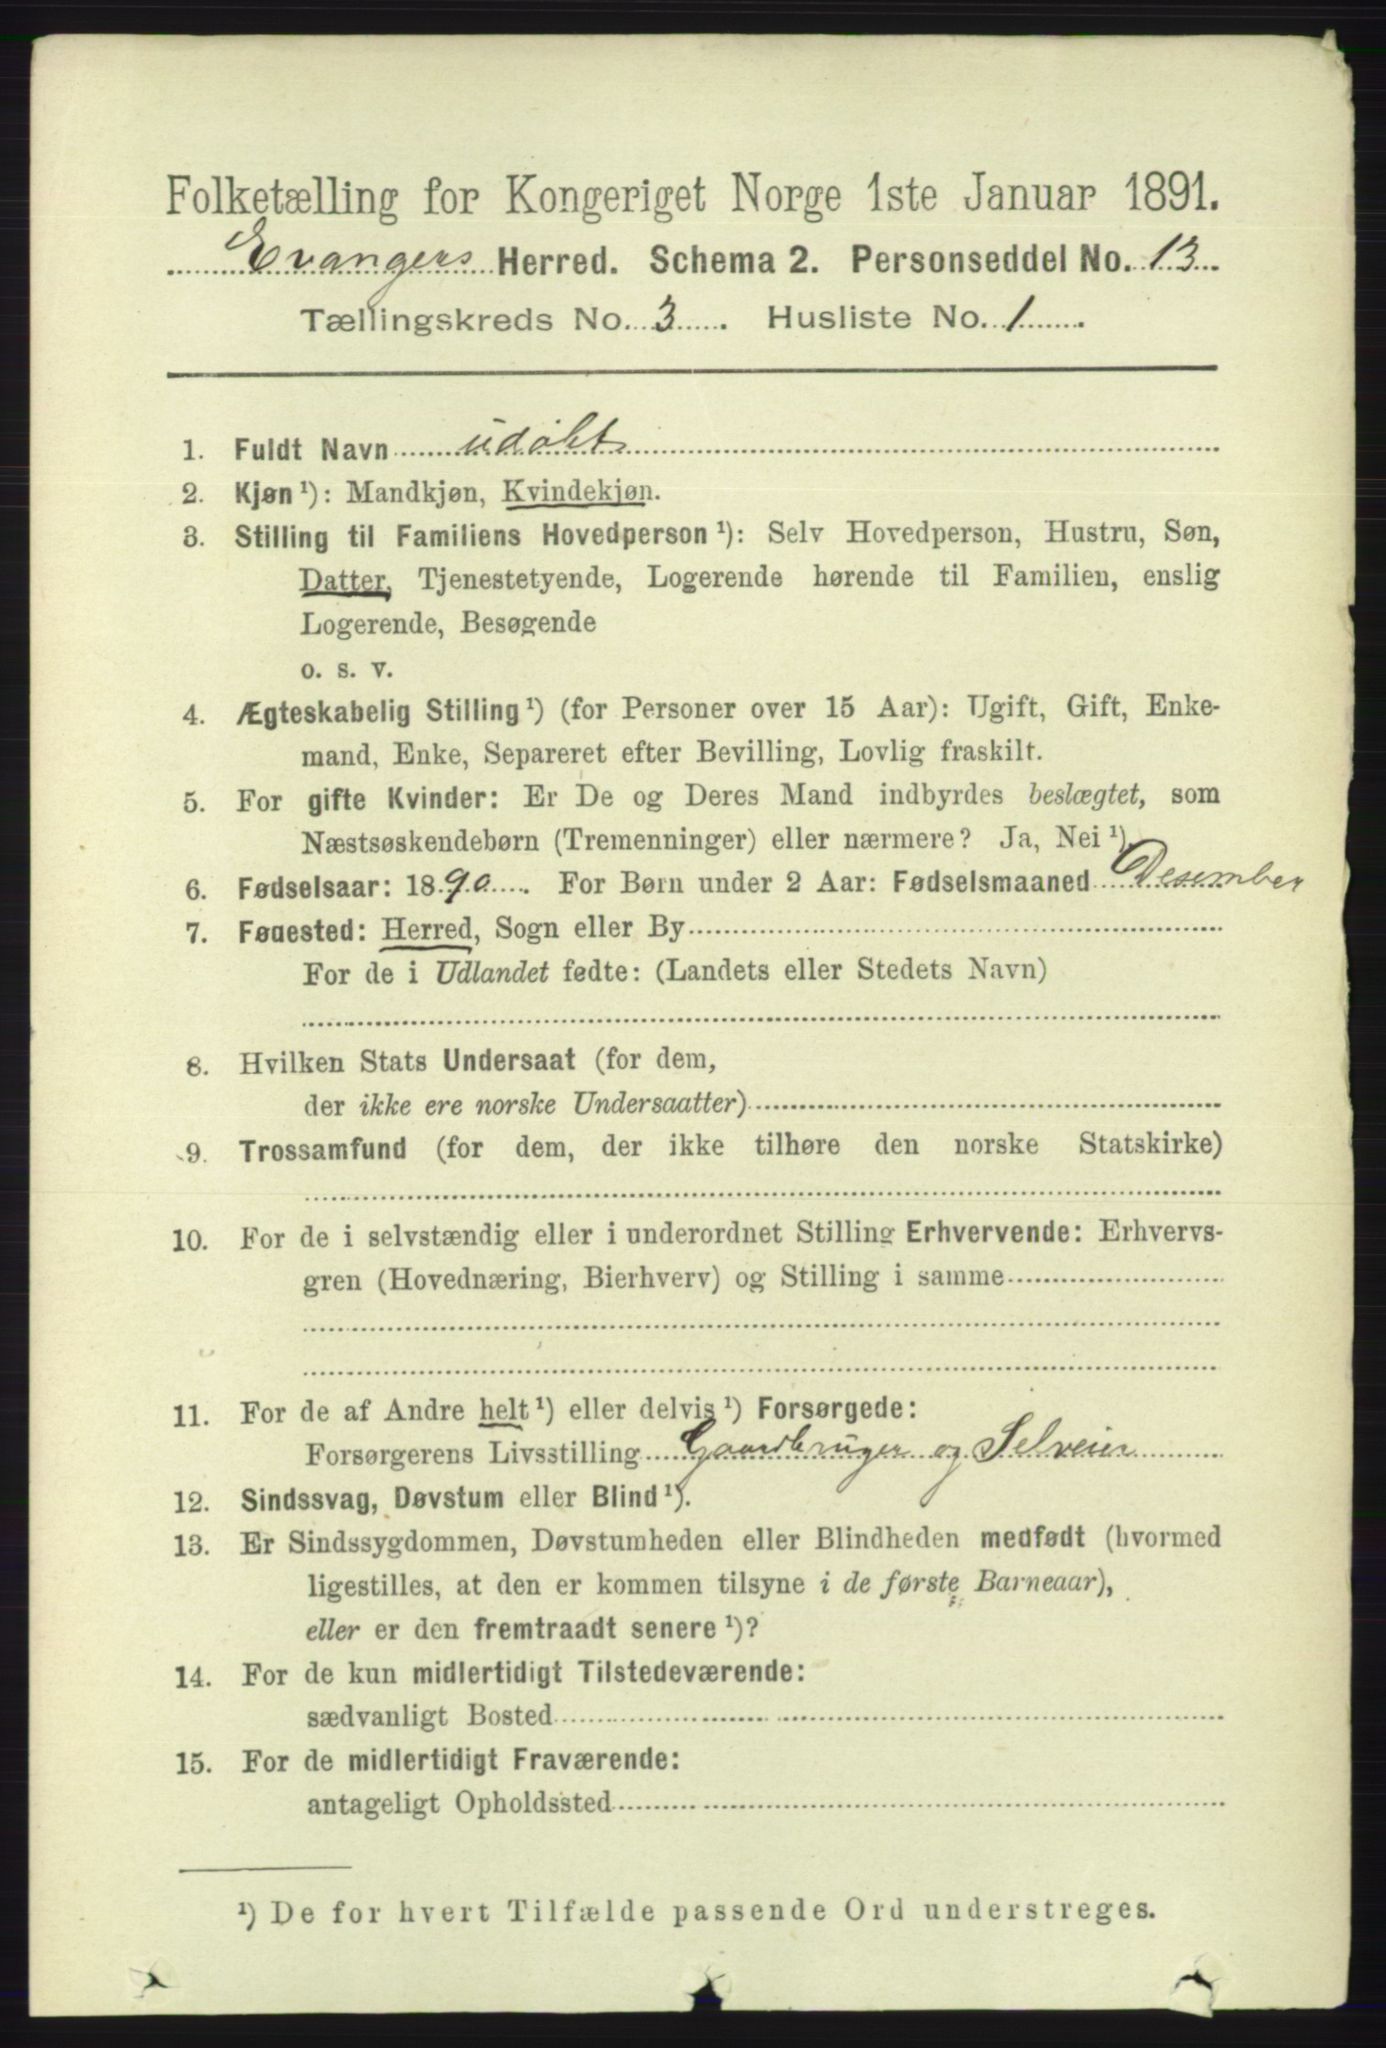 Folketælling for Kongeriget Norge 1ste Januar 1891.
Evangers Herred. Schema 2. Personseddel No. 13
Tællingskreds No. 3 Husliste No. 1
1. Fuldt Navn udøbt
2. Kjøn ¹): Mandkjøn, Kvindekjøn.
3. Stilling til Familiens Hovedperson ¹): Selv Hovedperson, Hustru, Søn,
Datter, Tjenestetyende, Logerende hørende til Familien, enslig
Logerende, Besøgende
o. s. v.
4. Ægteskabelig Stilling ¹) (for Personer over 15 Aar): Ugift, Gift, Enke-
mand, Enke, Separeret efter Bevilling, Lovlig fraskilt.
5. For gifte Kvinder: Er De og Deres Mand indbyrdes beslægtet, som
Næstsøskendebørn (Tremenninger) eller nærmere? Ja, Nei ¹).
6. Fødselsaar: 1890. For Børn under 2 Aar: Fødselsmaaned Desember
7. Fødested: Herred, Sogn eller By
For de i Udlandet fødte: (Landets eller Stedets Navn)
8. Hvilken Stats Undersaat (for dem,
der ikke ere norske Undersaatter)
9. Trossamfund (for dem, der ikke tilhøre den norske Statskirke)
10. For de i selvstændig eller i underordnet Stilling Erhvervende: Erhvervs-
gren (Hovednæring, Bierhverv) og Stilling i samme
11. For de af Andre helt ¹) eller delvis ¹) Forsørgede:
Forsørgerens Livsstilling Gaardbruger og Selveier
12. Sindssvag, Døvstum eller Blind ¹).
13. Er Sindssygdommen, Døvstumheden eller Blindheden medfødt (hvormed
ligestilles, at den er kommen tilsyne i de første Barneaar),
eller er den fremtraadt senere ¹)?
14. For de kun midlertidigt Tilstedeværende:
sædvanligt Bosted
15. For de midlertidigt Fraværende:
antageligt Opholdssted
¹) De for hvert Tilfælde passende Ord understreges.